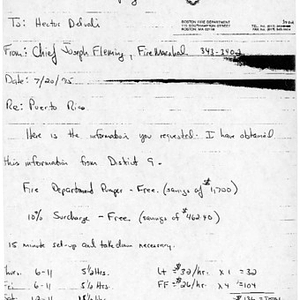 To: Hector
BOSTON FIRE DEPARTMENT
115 SOUTHAMPTON STREET
BOSTON, MA 02118
From: Chief Joseph Fleming, Fire Marshal
Date: 7/20/95
Re: Puerto Rico
Here is the information you requested. I have obtained
this information from District 9.
Fire Department Pumper - Free. (savings of $1,700)
10% Surcharge - Free. (savings of $462.40)
15 minute set-up and takedown necessary.
Thurs. 6-11 5½ Hrs. Lt = $32/hr. x 1 = 32
Fri. 6-11 5½ Hrs. FF = $26/hr. x 4 = $104
Sat.